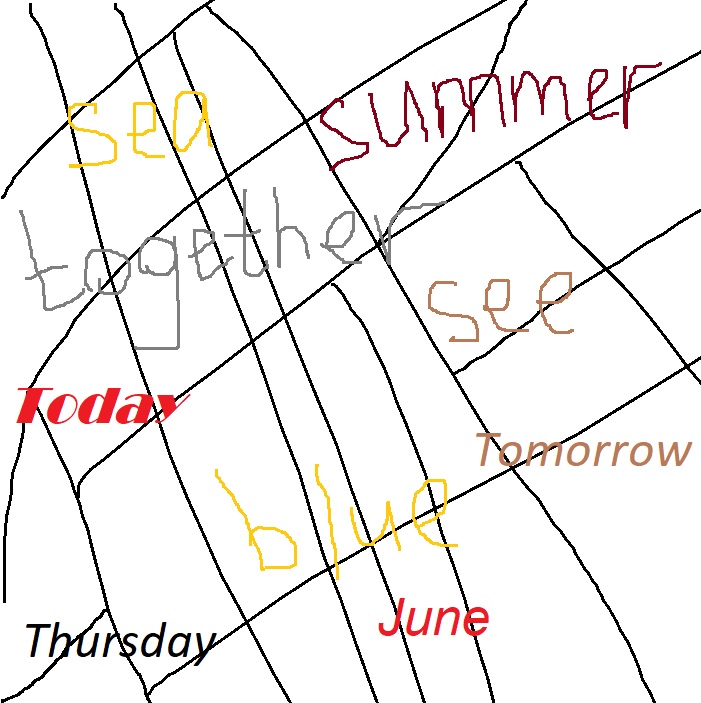 sea
summer
together
see
Today
Tomorrow
blue
June
Thursday